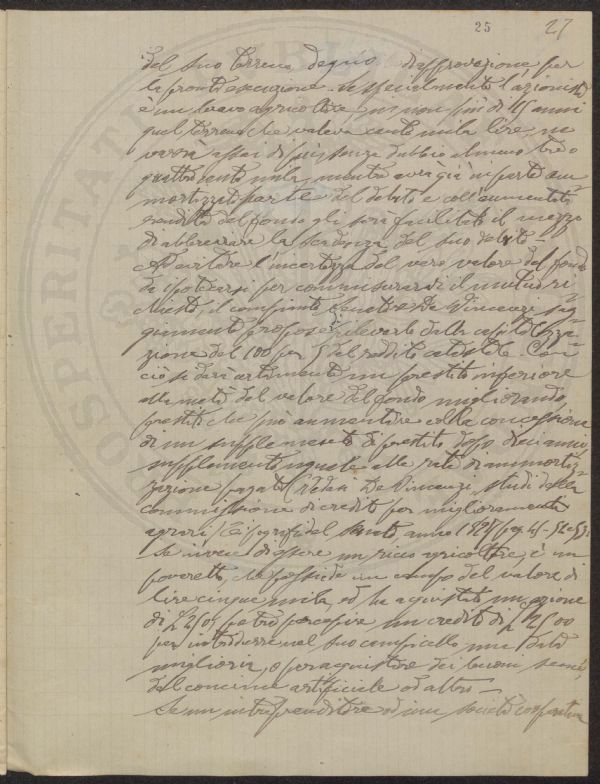 25 27
del suo terreno degno d'approvazione per
la pronta esecuzione. Se specialmente l'azionista
è un bravo agricoltore in non più di 15 anni
quel terreno che valeva cento mila lire ne
verrà assai di più senza dubbio almeno tre o
quattro cento mila, mentre avrà già in parte am=
mortizzato parte del debito e coll'aumentata
rendita del fondo gli sarà facilitato il mezzo
di abbreviare la scadenza del suo debito –
Ad evitare l'incertezza del vero valore del fondo
da ipotecarsi per commisurarvi il mutuo ri=
chiesto, il compianto Senatore De Vincenzi sag=
giamente propose di rilevarlo dalla capitalizza=
zione del 100 per 5 del reddito catastale. Con
ciò si darà certamente un prestito inferiore
alla metà del valore del fondo migliorando,
prestito che può aumentare colla concessione
di un supplemento di prestito dopo dieci anni,
supplemento uguale alle rate di ammortiz=
zazione pagate (Vedasi De Vincenzi, studi della
commissione di credito per miglioramenti
agrari, tipografia del Senato, anno pag.
Se invece di essere un ricco agricoltore, è un
poveretto, che possiede un campo del valore di
lire cinque mila, ed ha acquistato un'azione
di £ potrà percepire un credito di £ 2500
per introdurre nel suo campicello una data
miglioria, o per acquistare dei buoni semi,
del concime artificiale od altro –
Se un intraprenditore od una società